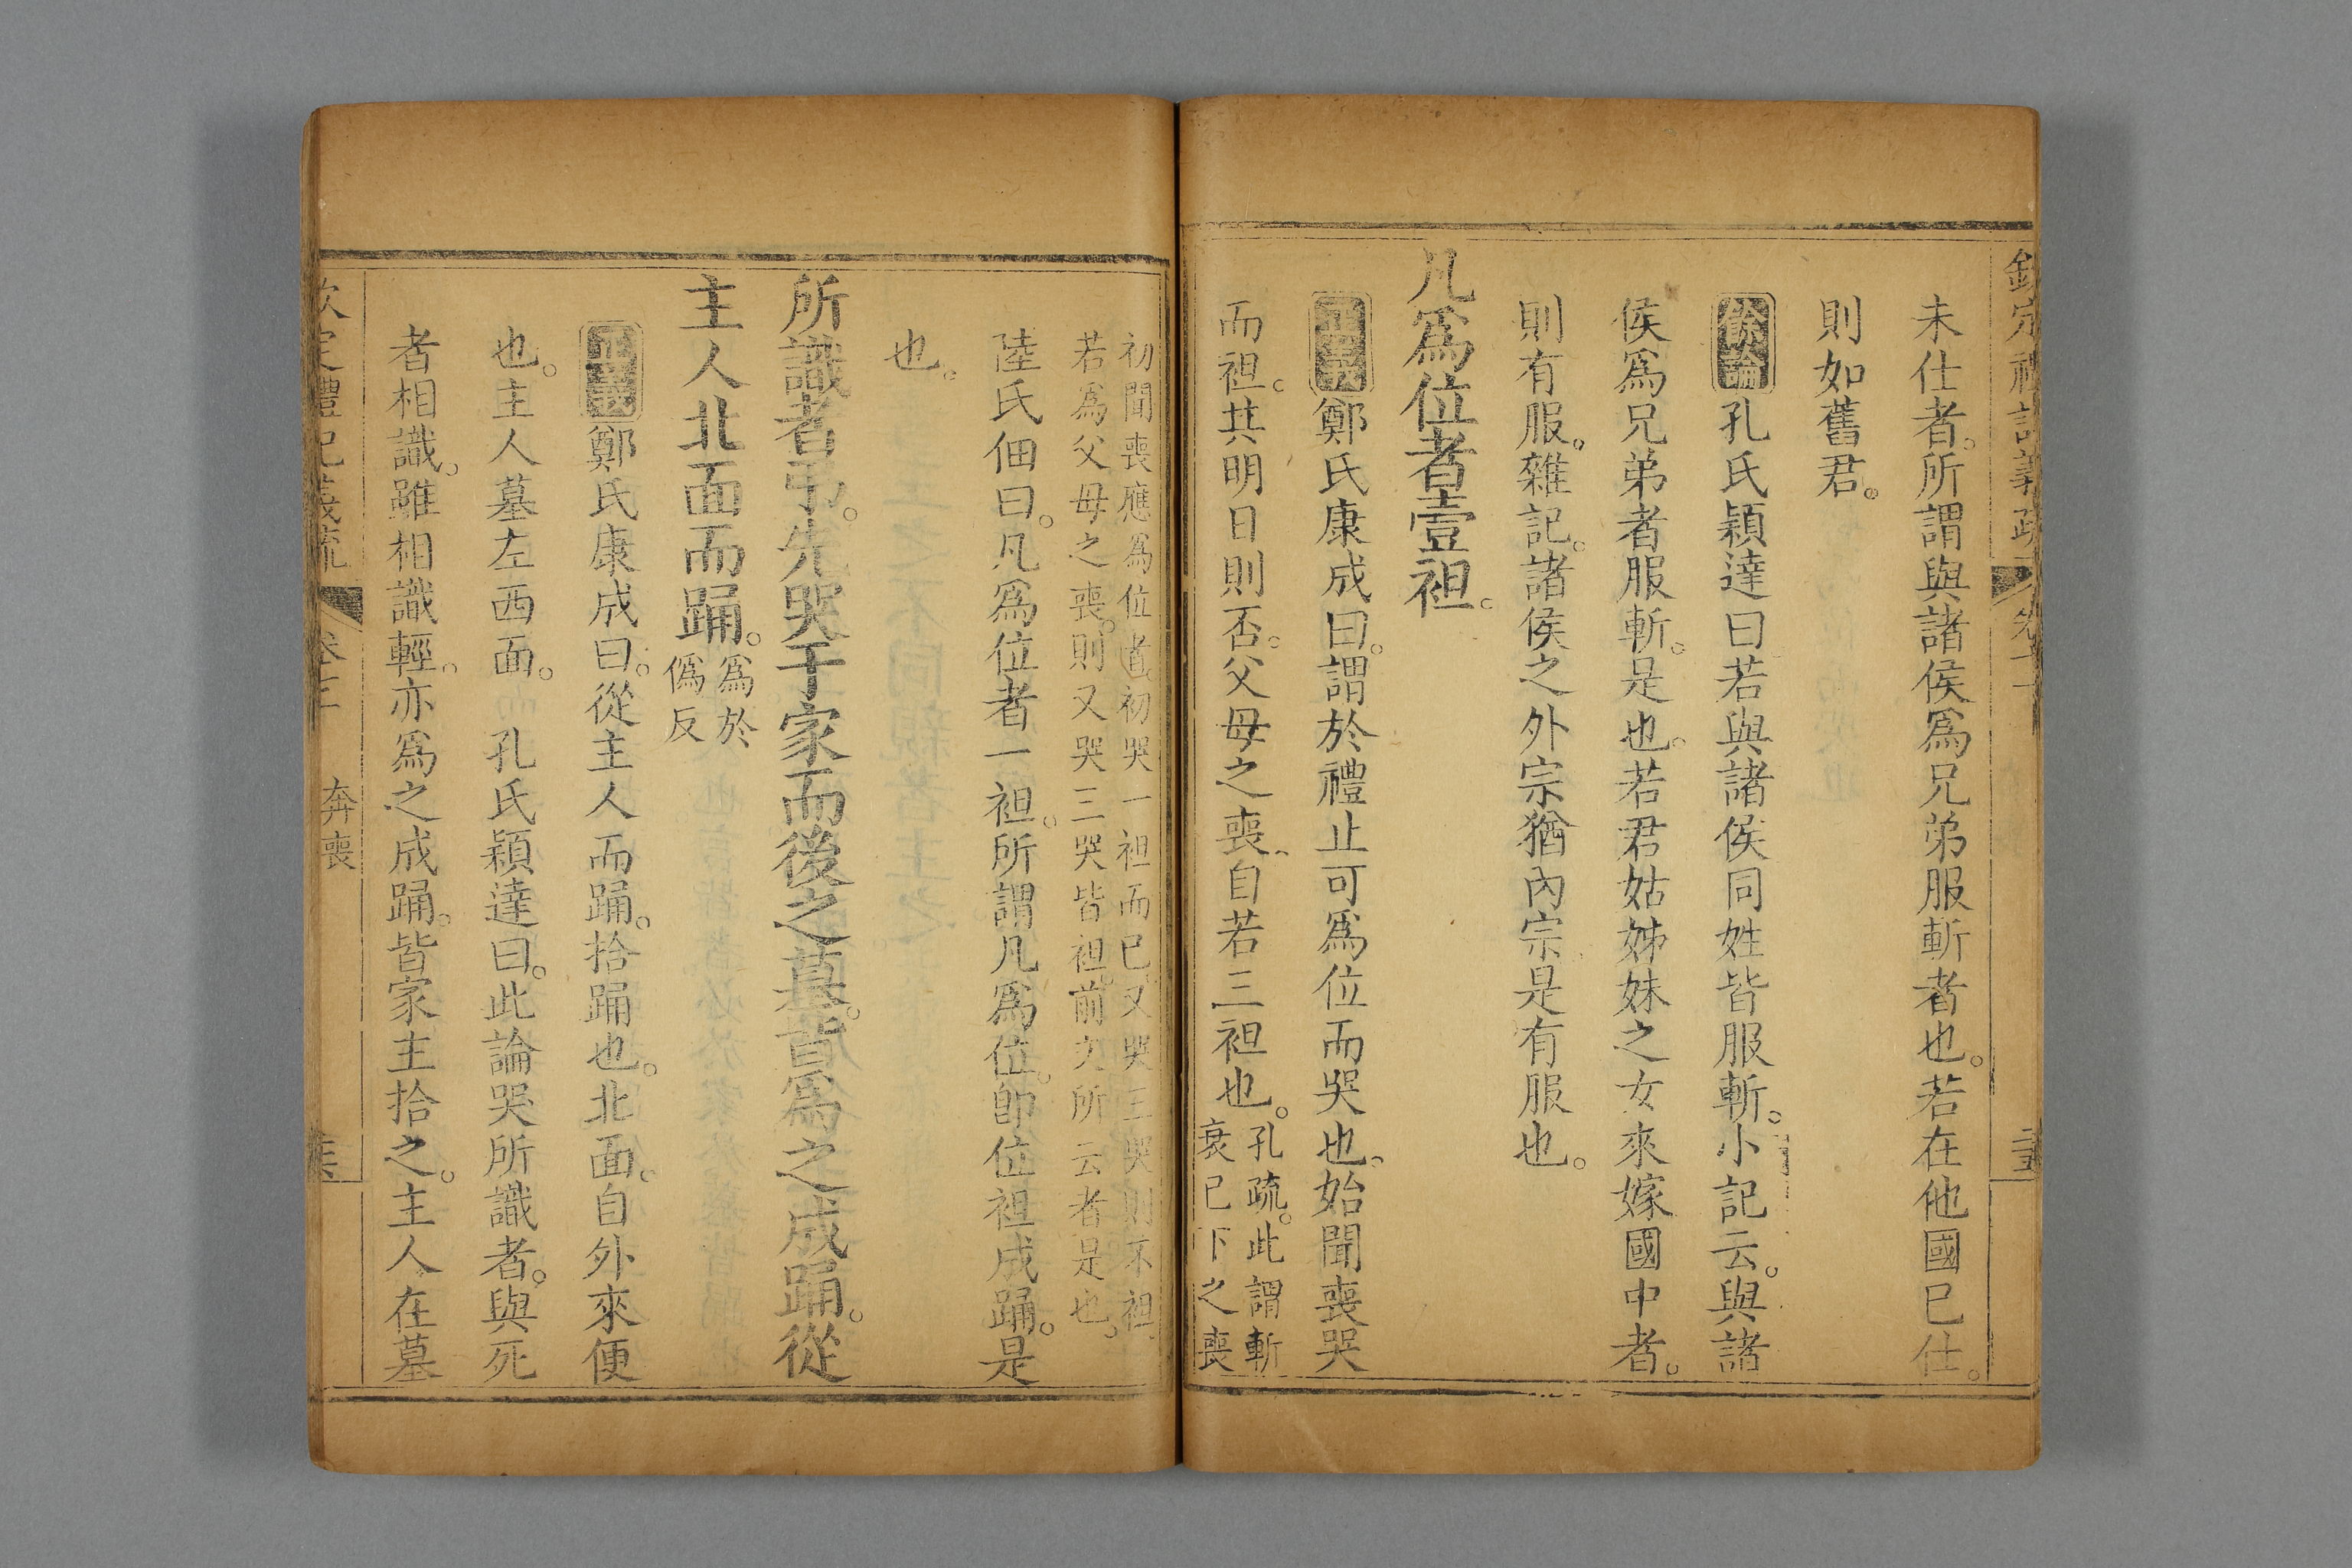 未仕者。所謂與諸侯爲兄弟服斬者也。若在他國已仕。
則如舊君。
餘論孔氏穎達曰若與諸侯同姓皆服斬。小記云。與諸
侯爲兄弟者服斬。是也。若君姑姊妹之女來嫁國中者。
則有服。雜記。諸侯之外宗猶內宗。是有服也。
凡爲位者壹袒。
正義鄭氏康成曰。謂於禮止可爲位而哭也。始聞喪哭
而袒。其明日則否。父母之喪。自若三袒也。孔疏。此謂斬
衰已下之喪
初聞喪應爲位者。初哭一袒而已。又哭三哭則不袒。
若爲父母之喪。則又哭三哭皆袒。前文所云者是也。
陸氏佃曰。凡爲位者一袒。所謂凡爲位。卽位袒成踊。是
也。
所識者弔。先哭于家而後之墓。皆爲之成踊。從
主人北面而踊。爲於
僞反
正義鄭氏康成曰。從主人而踊。拾踊也。北面。自外來便
也。主人墓左西面。 孔氏穎達曰。此論哭所識者。與死
者相識。雖相識輕。亦爲之成踊。皆家主拾之。主人在墓
奔喪